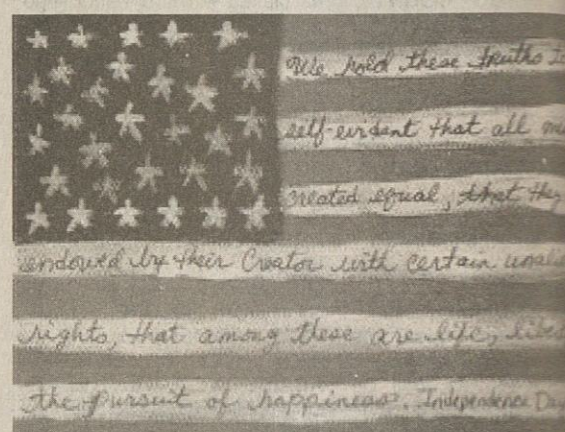 We hold these truths to
self-evident that all
created equal, that they
endowed by their Creator with certain
rights, that among these are life,
the pursuit of happiness. Independence